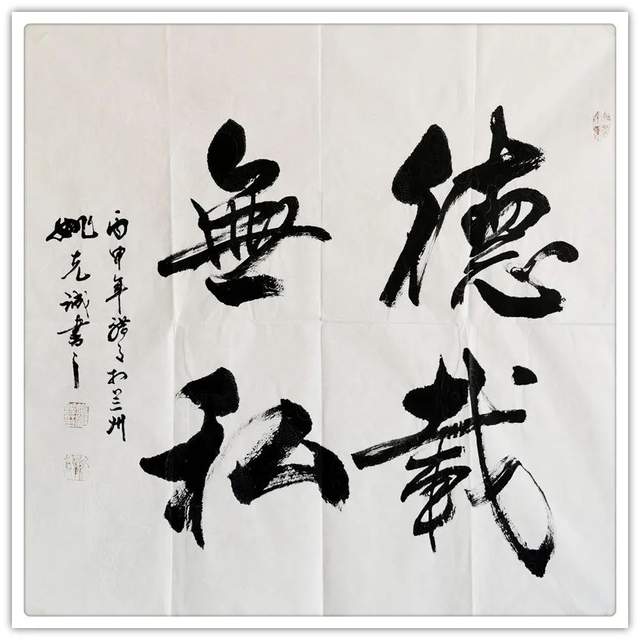 德載
無私
丙申年臘月於兰州
姚克誠書之